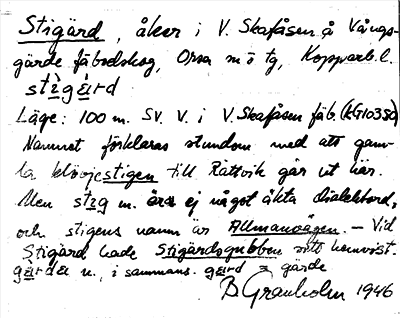 Stigärd, åker i V. Skafåsen å Vångs-
gärde fäbodskog, Orsa m ö tg, Kopparb. l.
stìgä̀rd
Läge: 100 m. SV. V. i V. Skafåsen fäb. (KG1035a)
Namnet förklaras stundom med att gam-
la klövjestigen till Rättvik går ut här.
Men stig m. är ej något äkta dialektord,
och stigens namn är Allmanvägen. – Vid
Stigärd hade Stigärdsgubben sitt hemvist.
gärda n., i sammans. gärd = gärde
B Granholm 1946